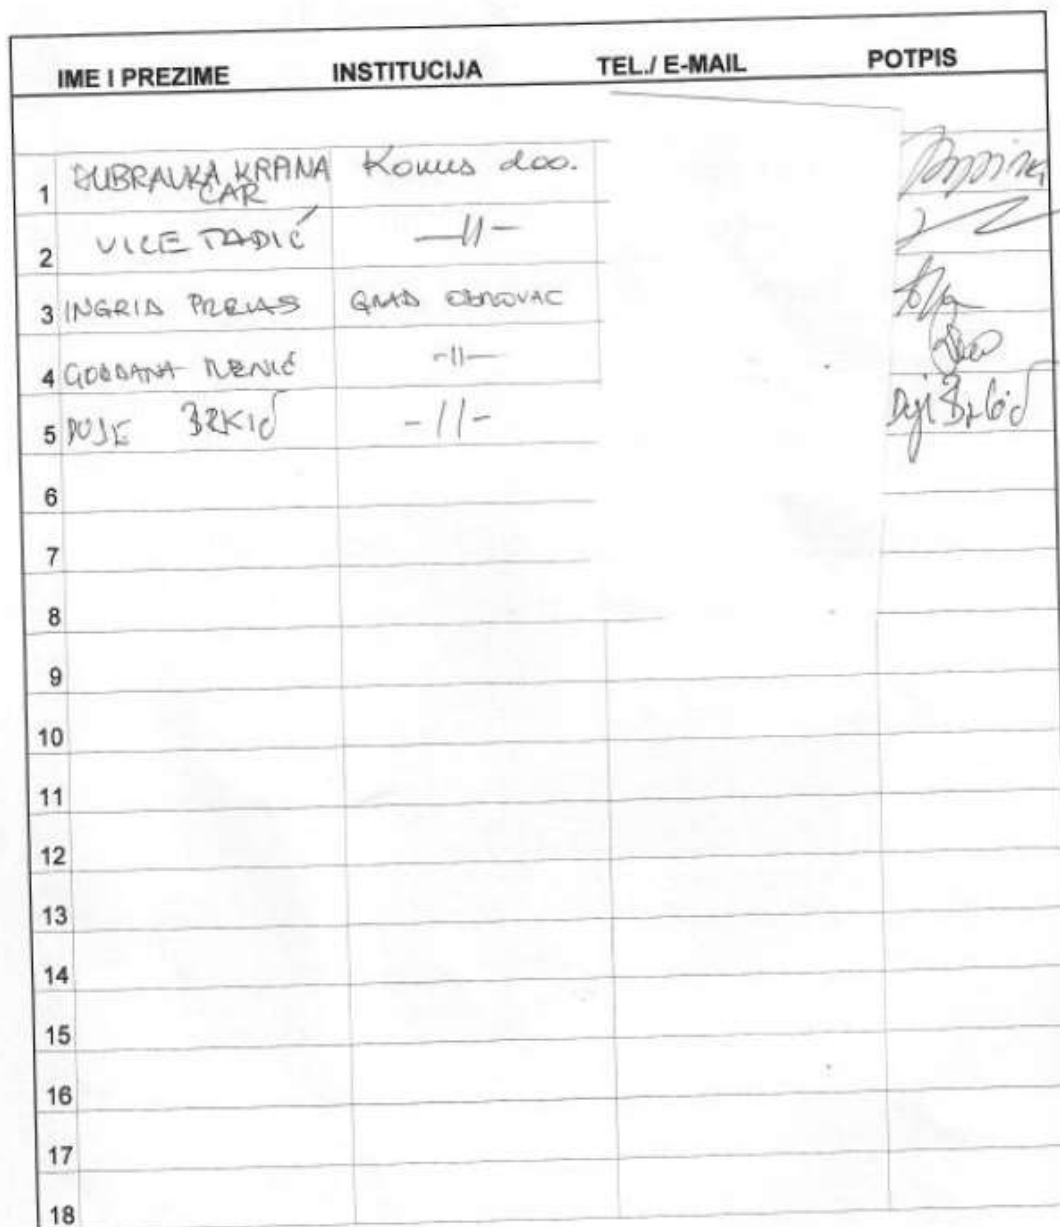 IME I PREZIME INSTITUCIJA TEL./ E-MAIL POTPIS
1 DUBRAVKA KRPINA Konus doo.
CAR
2 VICE TADIĆ —11—
3 INGRID GRAD OBROVAC
4 GORDANA -11—
5 DUJE BRKIĆ -11- Duje Brkić
6
7
8
9
10
11
12
13
14
15
16
17
18